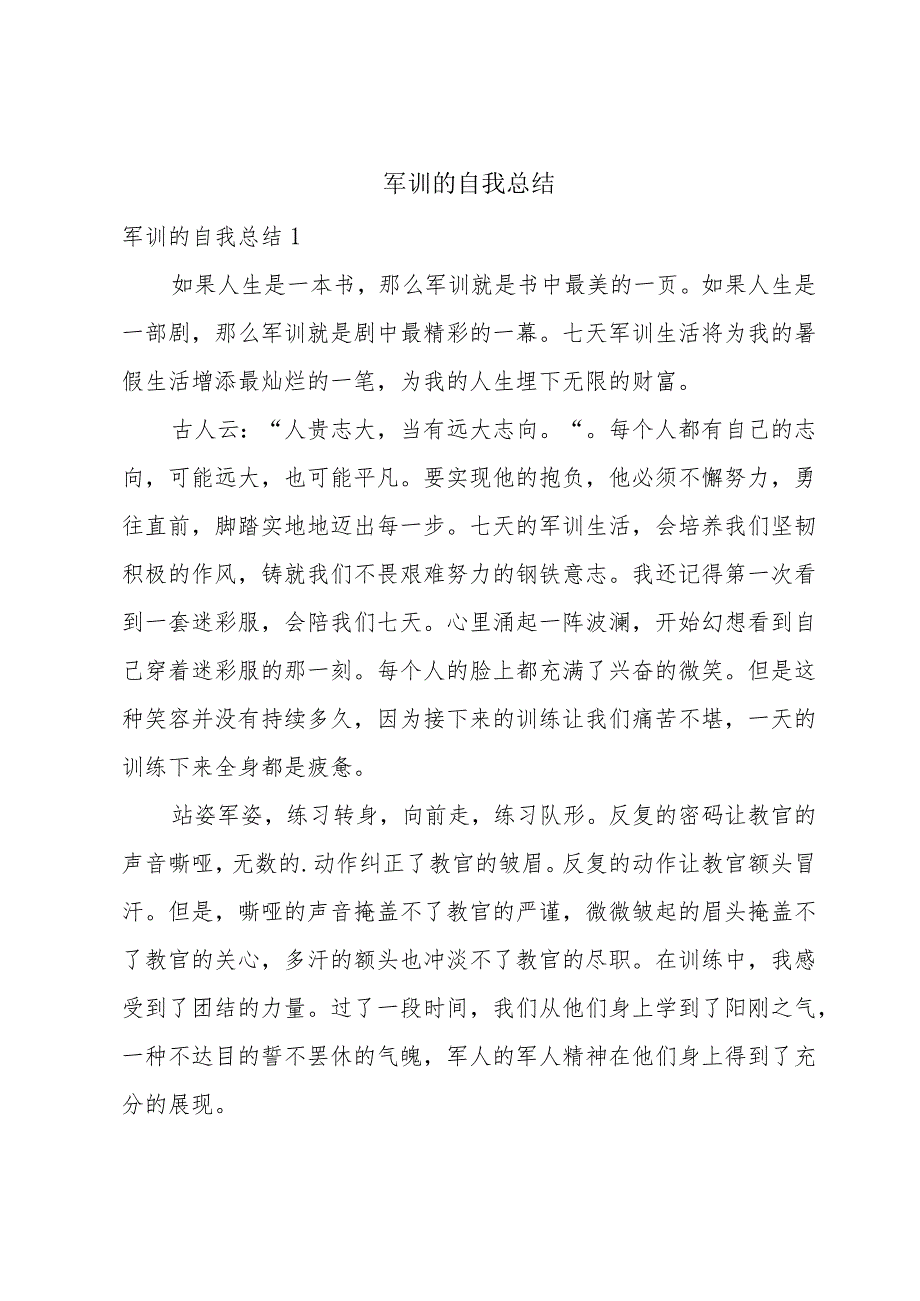 军训的自我总结
军训的自我总结1
如果人生是一本书，那么军训就是书中最美的一页。如果人生是
一部剧，那么军训就是剧中最精彩的一幕。七天军训生活将为我的暑
假生活增添最灿烂的一笔，为我的人生埋下无限的财富。
古人云：“人贵志大，当有远大志向。“。每个人都有自己的志
向，可能远大，也可能平凡。要实现他的抱负，他必须不懈努力，勇
往直前，脚踏实地地迈出每一步。七天的军训生活，会培养我们坚韧
积极的作风，铸就我们不畏艰难努力的钢铁意志。我还记得第一次看
到一套迷彩服，会陪我们七天。心里涌起一阵波澜，开始幻想看到自
己穿着迷彩服的那一刻。每个人的脸上都充满了兴奋的微笑。但是这
种笑容并没有持续多久，因为接下来的训练让我们痛苦不堪，一天的
训练下来全身都是疲惫。
站姿军姿，练习转身，向前走，练习队形。反复的密码让教官的
声音嘶哑，无数的.动作纠正了教官的皱眉。反复的动作让教官额头冒
汗。但是，嘶哑的声音掩盖不了教官的严谨，微微皱起的眉头掩盖不
了教官的关心，多汗的额头也冲淡不了教官的尽职。在训练中，我感
受到了团结的力量。过了一段时间，我们从他们身上学到了阳刚之气，
一种不达目的誓不罢休的气魄，军人的军人精神在他们身上得到了充
分的展现。